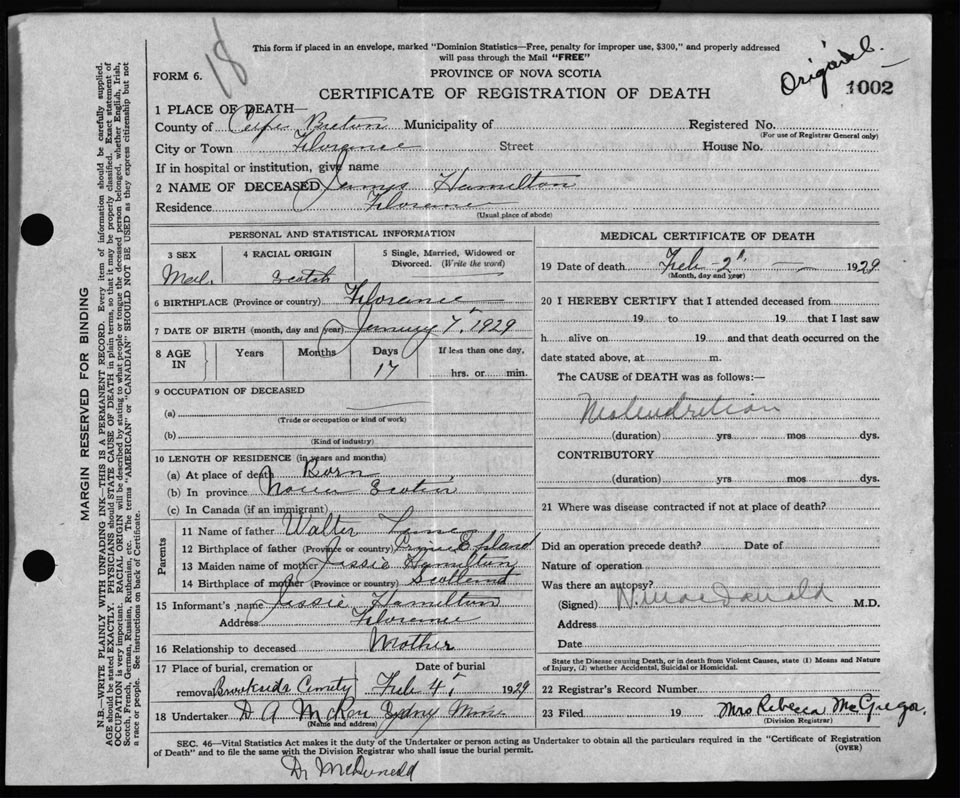 18
This form if placed in an envelope, marked "Dominion Statistics—Free, penalty for improper use, $300," and properly addressed
will pass through the Mail "FREE"
FORM 6.
PROVINCE OF NOVA SCOTIA
CERTIFICATE OF REGISTRATION OF DEATH
1002
1 PLACE OF DEATH—
County of Cape Breton Municipality of Registered No.
(For use of Registrar General only)
City or Town Florence Street House No.
If in hospital or institution, give name
2 NAME OF DECEASED James Hamilton
Residence Florence
(Usual place of abode)
PERSONAL AND STATISTICAL INFORMATION
3 SEX 4 RACIAL ORIGIN 5 Single, Married, Widowed or
Divorced. (Write the word)
Mal. Scotch
6 BIRTHPLACE (Province or country) Florence
7 DATE OF BIRTH (month, day and year) January 7, 1929
8 AGE IN Years Months Days If less than one day,
17 hrs. or min.
9 OCCUPATION OF DECEASED
(a)
(Trade or occupation or kind of work)
(b)
(Kind of industry)
10 LENGTH OF RESIDENCE (in years and months)
(a) At place of death Born
(b) In province Nova Scotia
(c) In Canada (if an immigrant)
Parents
11 Name of father Walter
12 Birthplace of father (Province or country) Prince E Island
13 Maiden name of mother Jessie Hamilton
14 Birthplace of mother (Province or country) Scotland
15 Informant's name Jessie Hamilton
Address Florence
16 Relationship to deceased Mother
17 Place of burial, cremation or Date of burial
removal Brookside Cemety Feb 4, 1929
18 Undertaker D A McRae Sydney Mines
(Name and address)
MEDICAL CERTIFICATE OF DEATH
19 Date of death Feb 2" 1929
(Month, day and year)
20 I HEREBY CERTIFY that I attended deceased from
19 to 19 that I last saw
h alive on 19 and that death occurred on the
date stated above, at m.
The CAUSE of DEATH was as follows:—
Malnudrition
(duration) yrs mos dys.
CONTRIBUTORY
(duration) yrs. mos dys.
21 Where was disease contracted if not at place of death?
Did an operation precede death? Date of
Nature of operation
Was there an autopsy?
(Signed) N. MacDonald M.D.
Address
Date
State the Disease causing Death, or in death from Violent Causes, state (1) Means and Nature
of Injury, (2) whether Accidental, Suicidal or Homicidal.
22 Registrar's Record Number
23 Filed 19 Mrs Rebecca McGregor.
(Division Registrar)
SEC. 46—Vital Statistics Act makes it the duty of the Undertaker or person acting as Undertaker to obtain all the particulars required in the "Certificate of Registration
of Death" and to file the same with the Division Registrar who shall issue the burial permit. (OVER)
Dr McDonald
MARGIN RESERVED FOR BINDING
N.B.—WRITE PLAINLY WITH UNFADING INK—THIS IS A PERMANENT RECORD. Every item of information should be carefully supplied.
AGE should be stated EXACTLY. PHYSICIANS should STATE CAUSE OF DEATH in plain terms, so that it may be properly classified. Exact statement of
OCCUPATION is very important. RACIAL ORIGIN will be described by stating to what people or tongue the deceased person belonged, whether English, Irish,
Scotch, French, German, Russian, Ruthenian, etc. The terms "AMERICAN" or "CANADIAN" SHOULD NOT BE USED as they express citizenship but not
a race or people. See instructions on back of Certificate.